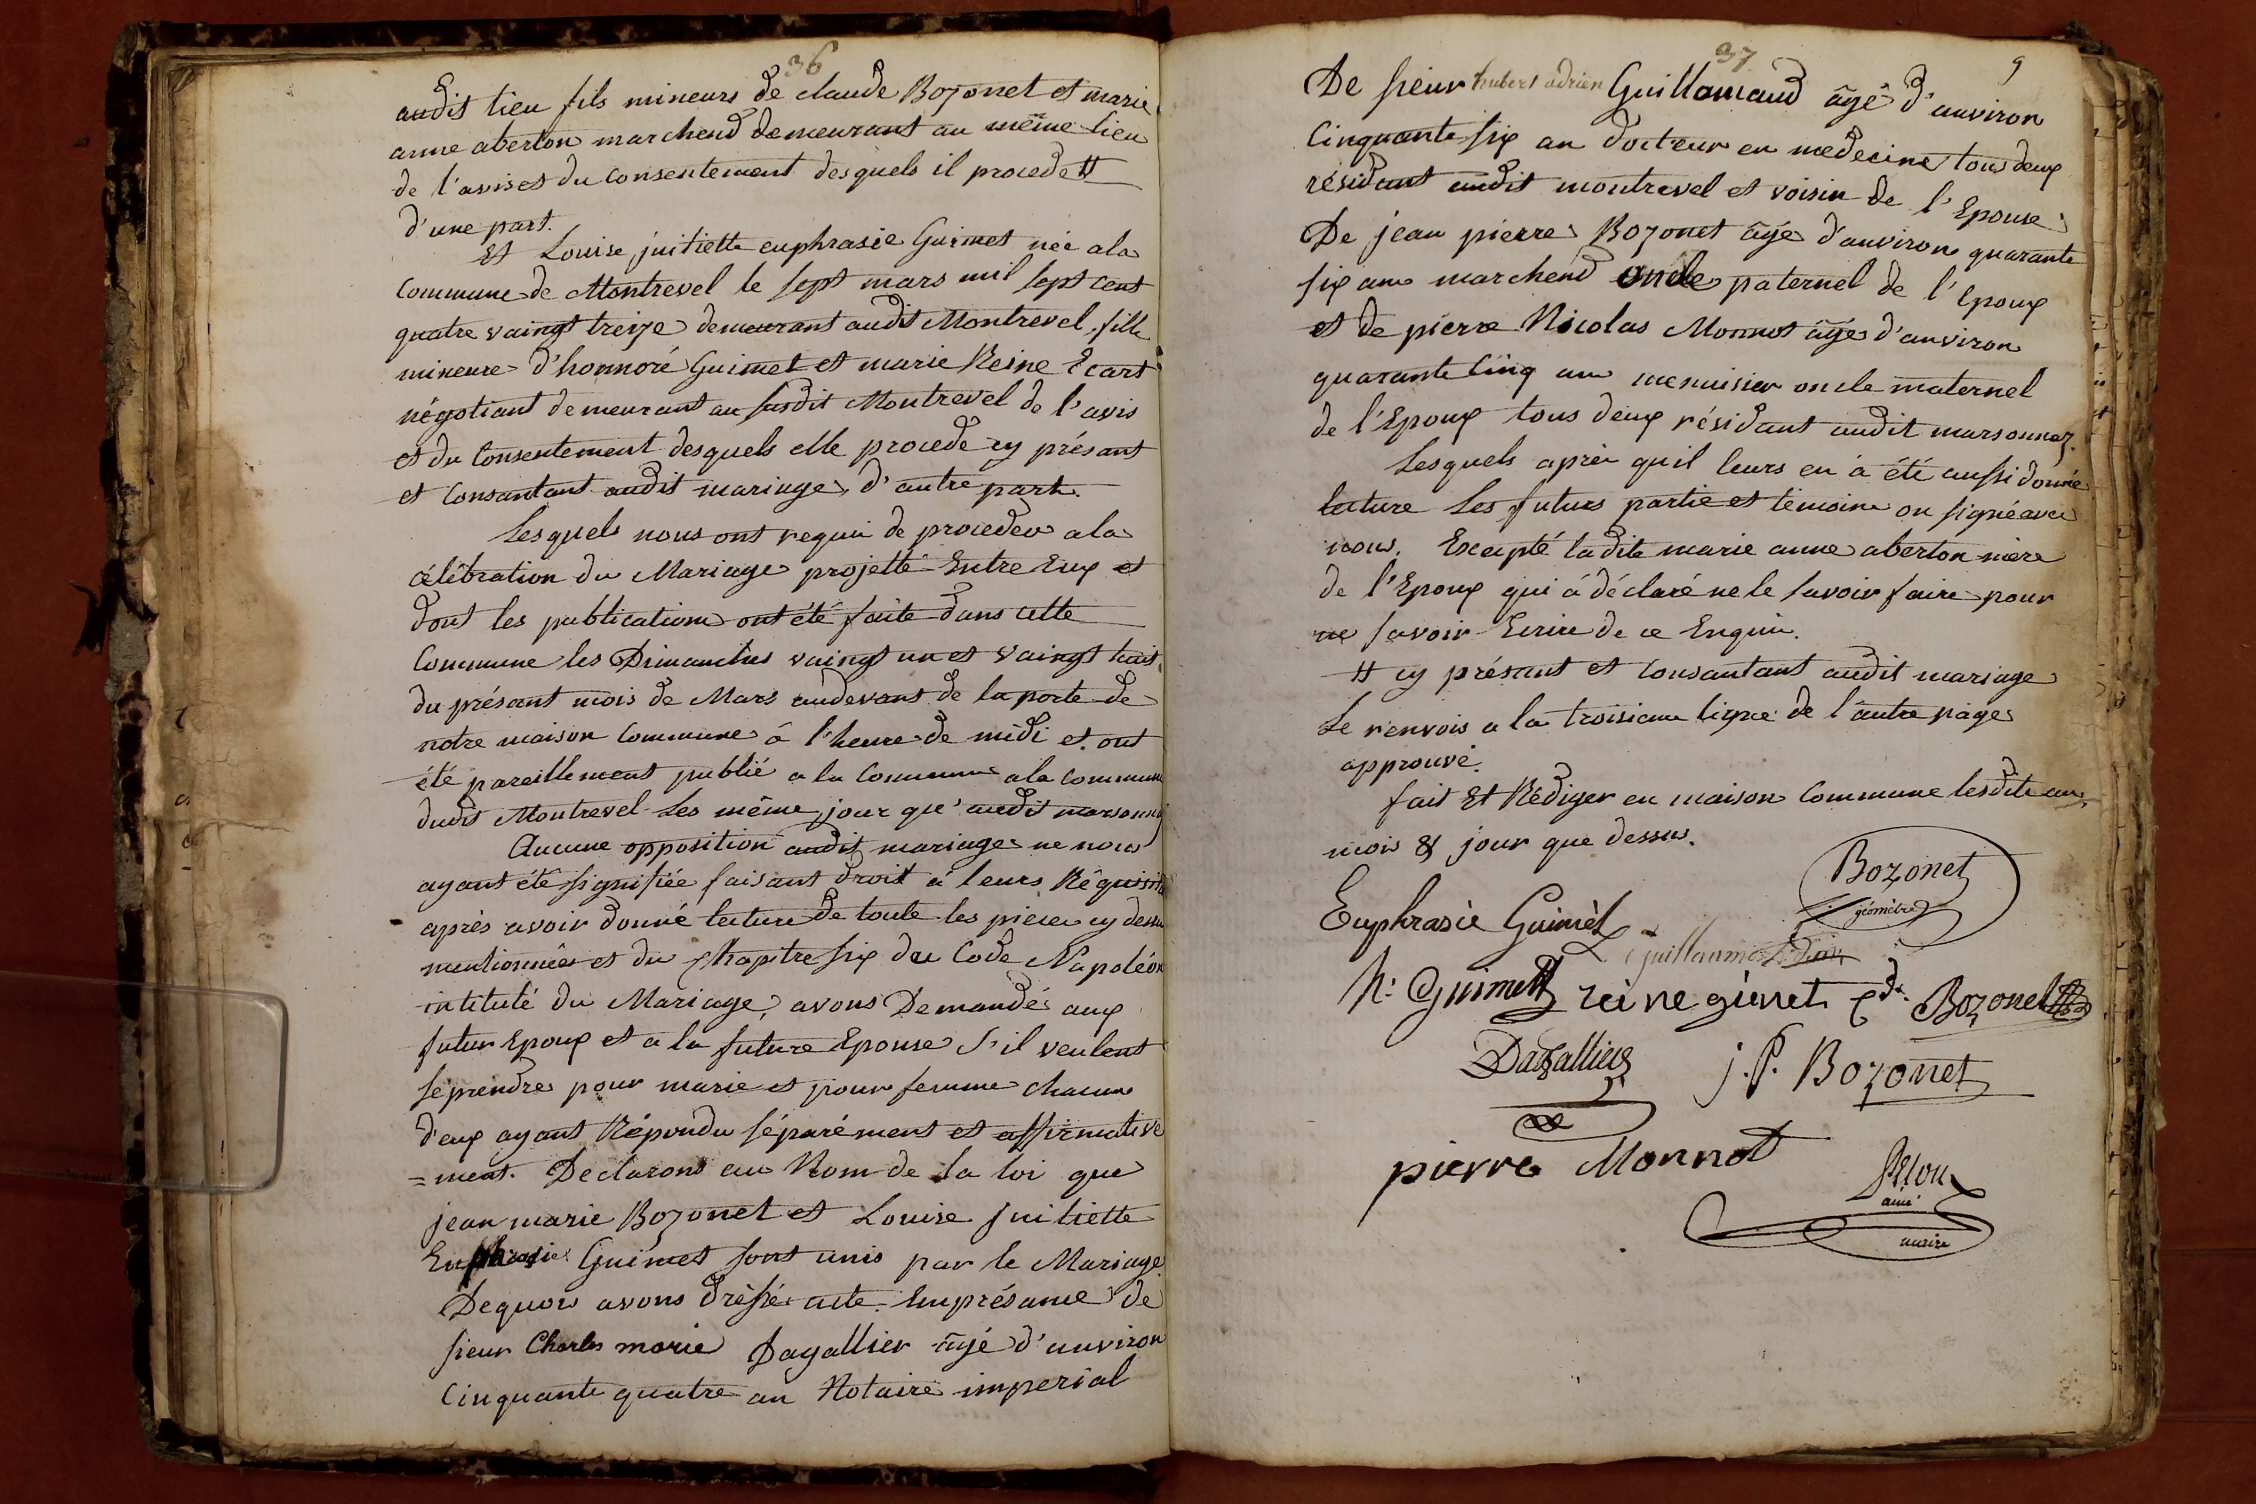 36
audit lieu fils mineurs de claude Bozonet et marie
anne aberton marchend demeurant au même lieu
de l'avis et du consentement desquels il procede #
d'une part.
Et Louise juitiette euphrasie Guimet née a la
Commune de Montrevel le sept mars mil sept cent
quatre vaingt treize demeurant audit Montrevel, fille
mineure d'honnoré Guimet et marie Reine Ecart
négotiant demeurant au susdit Montrevel de l'avis
et du Consentement desquels elle procede cy présant
et Consantant audit mariage, d'autre part.
Lesquels nous ont requis de proceder a la
célébration du Mariage projetté Entre Eux et
dont les publications ont été faite dans cette
Commune les Dimanches vaingt un et vaingt huit
du présant mois de Mars audevant de la porte de
notre maison Commune à l'heure de midi et ont
été pareillement publié a la Commune a la Commune
dudit Montrevel Les même jour qu'audit marsonnaz
Aucune opposition audit mariage ne nous
ayant été signifiée faisant droit à leurs Réquisit
après avoir donné lecture de toute les pieces cy dessu
mentionnées et du Chapitre six du Code Napoléon
intitulé du Mariage, avons Demandé aux
futur Epoux et a la future Epouse s'il veulent
se prendre pour marie et pour femme chacun
d'eux ayant Répondu séparément et affirmative
=ment. Declarons au Nom de la loi que
jean marie Bozonet et Louise juitiette
Euphrasie Guimet sont unis par le Mariage
Dequois avons dréssé acte. Enprésance de
sieur Charles marie Dagallier âgé d'anviron
Cinquante quatre an Notaire imperial
37
9
De sieur hubert adrien Guillomaud âgé d'anviron
Cinquante six an docteur en medecine tous deux
résidant audit montrevel et voisin de l'Epouse
De jean pierre Bozonet âgé d'anviron quarante
six ans marchend oncle paternel de l'Epoux
et de pierre Nicolas Monnot âgé d'anviron
quarante Cinq ans menuisier oncle maternel
de l'Epoux tous deux résidant audit marsonnaz.
Lesquels après quil leurs en à été aussi donnée
lecture Les futurs partie et temoins on signé avec
nous. Excepté ladite marie anne aberton mère
de l'Epoux qui à déclaré ne le savoir faire pour
ne savoir Ecrire de ce Enquis.
# cy présant et Consantant audit mariage
Le renvois a la troisieme ligne de l'autre page
approuvé.
fait Et Rédiger en maison Commune lesdits an,
mois & jour que dessus.
Bozonet
géomètre
Euphrasie Guimet
h. Guimet reine gimet
Cde. Bozonet
Dagallier
j. P. Bozonet
pierre Monnot
ainé
maire